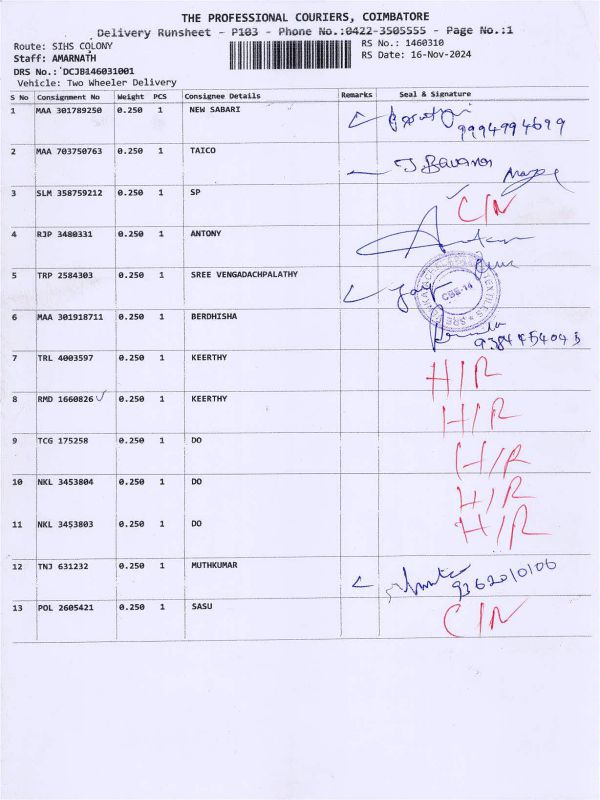 THE PROFESSIONAL COURIERS, COIMBATORE
Delivery Runsheet - P103 - Phone No.:0422-3505555 - Page No.:1
Route: SIHS COLONY RS No.: 1460310
Staff: AMARNATH RS Date: 16-Nov-2024
DRS No.: DCJB146031001
Vehicle: Two Wheeler Delivery
S No Consignment No Weight PCS Consignee Details Remarks Seal & Signature
1 MAA 301789250 0.250 1 NEW SABARI
9994994699
2 MAA 703750763 0.250 1 TAICO
3 SLM 358759212 0.250 1 SP C/N
4 RJP 3480331 0.250 1 ANTONY
5 TRP 2584303 0.250 1 SREE VENGADACHPALATHY CBE-14
6 MAA 301918711 0.250 1 BERDHISHA
7 TRL 4003597 0.250 1 KEERTHY H/R
8 RMD 1660826 0.250 1 KEERTHY H/R
9 TCG 175258 0.250 1 DO H/R
10 NKL 3453804 0.250 1 DO H/R
11 NKL 3453803 0.250 1 DO H/R
12 TNJ 631232 0.250 1 MUTHKUMAR 9362010106
13 POL 2605421 0.250 1 SASU C/N